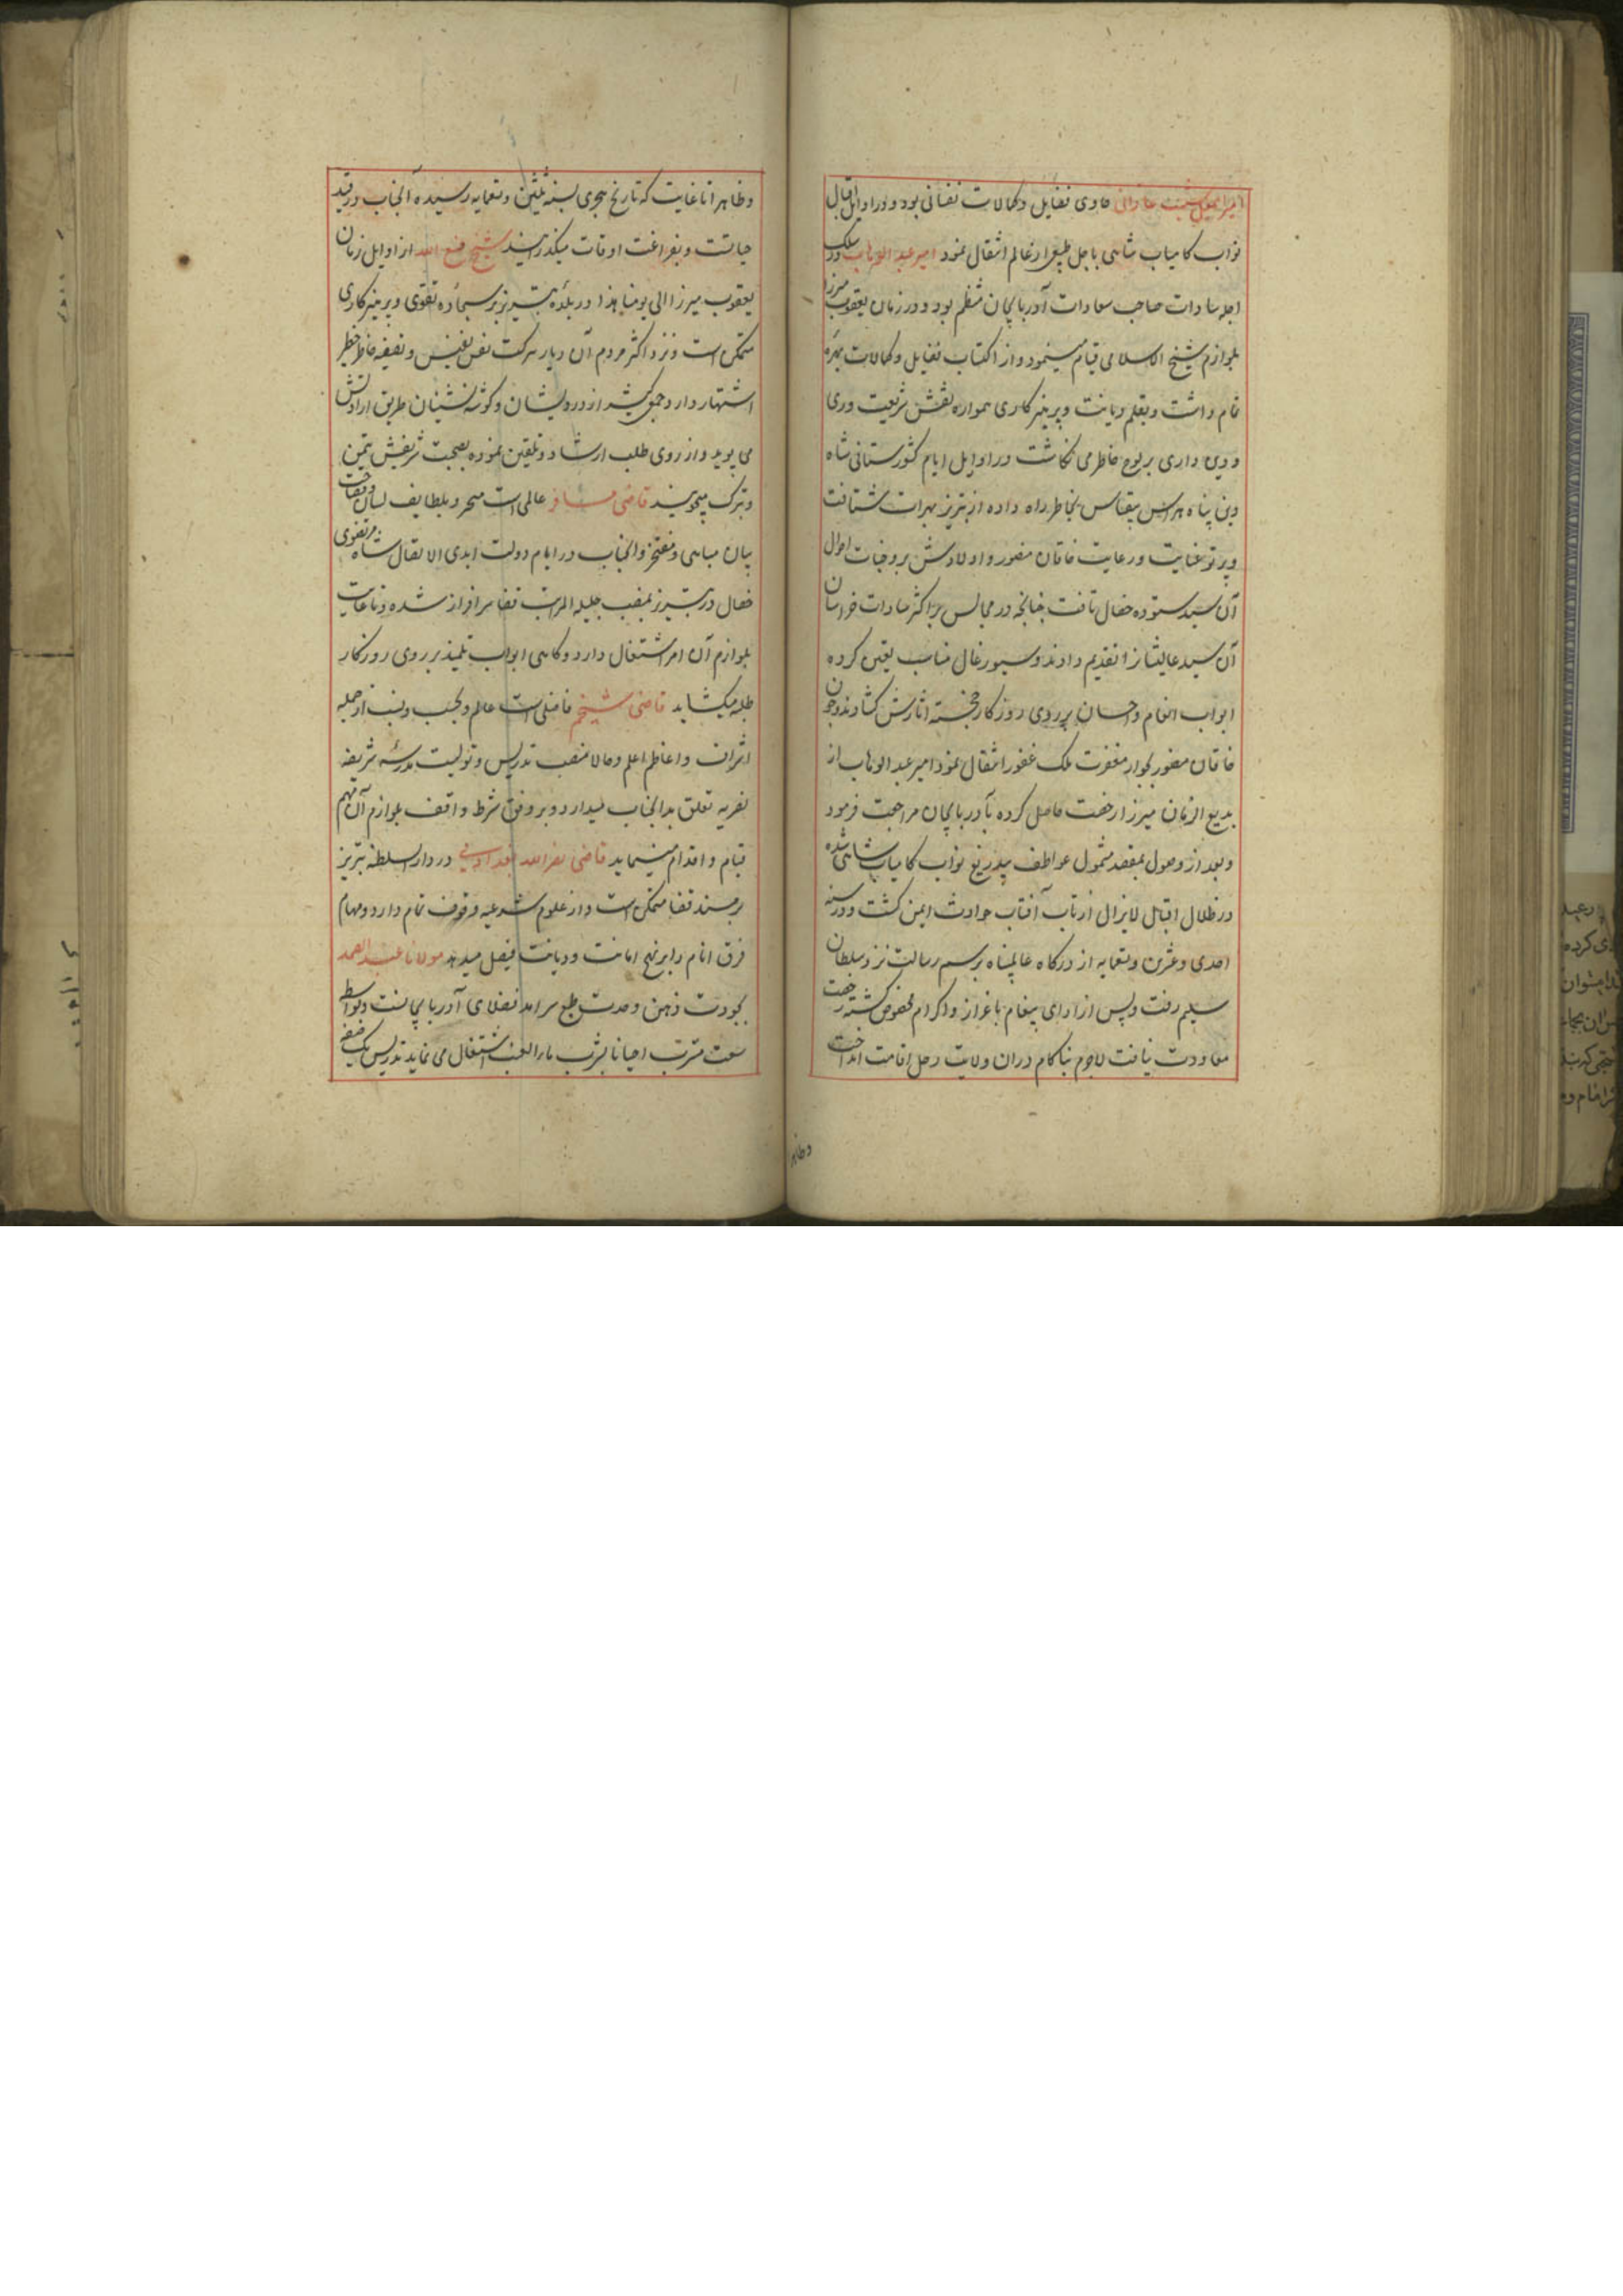 حاوی فضایل و کمالات نفسانی بود و در اوایل اقبال
نواب کامیاب شاهی باجل طبیعی از عالم انتقال نمود امیر عبد الوهاب در سلک
اجله سادات صاحب سعادات آذربایجان منتظم بود و در زمان یعقوب میرزا
بلوازم شیخ الاسلامی قیام مینمود و از اکتساب فضایل و کمالات بهره
تمام داشت و بقلم دیانت و پرهیزکاری همواره نقش شریعت وری
و دین داری بر لوح خاطر می نکاشت در اوایل ایام کشورستانی شاه
دین پناه هراس بیقیاس بخاطر راه داده از تبریز بهرات شتافت
و پرتو عنایت و رعایت خاقان منصور و اولادش بر وجنات احوال
آن سید ستوده خصال تافت چنانچه در مجالس بر اکثر سادات خراسان
آن سید عالیشانرا تقدیم دادند و سیورغال مناسب تعین کرده
ابواب انعام و احسان بر روی روزکار خجسته اثارش کشادند و چون
خاقان مغفور بجوار مغفرت ملک غفور انتقال نمود امیر عبد الوهاب از
بدیع الزمان میرزا رخصت حاصل کرده بآذربایجان مراجعت فرمود
و بعد از وصول بمقصد مشمول عواطف بیدریغ نواب کامیاب شاهی شده
در ظلال اقبال لایزال از تاب آفتاب حوادث ایمن کشت و در سنه
احدی و عشرین و تسعمایه از درکاه عالمپناه برسم رسالت نزد سلطان
سلیم رفت و پس از ادای پیغام باعزاز و اکرام مخصوص کشته رخصت
معاودت نیافت لاجرم بناکام دران ولایت رحل اقامت انداخت
و ظاهر
و ظاهرا تا غایت که تاریخ هجری بسنه ثلثین و تسعمایه رسیده آنجناب در قید
حیاتست و بفراغت اوقات میکذراند شیخ صنع الله از اوایل زمان
یعقوب میرزا الی یومنا هذا در بلده تبریز بر سجاده تقوی و پرهیزکاری
متمکن است و نزد اکثر مردم آن دیار ببرکت نفس نفیس و تصفیه خاطر خطیر
اشتهار دارد و جمعی کثیر از درویشان و کوشه نشینان طریق ارادتش
می پویند و از روی طلب ارشاد و تلقین نموده بصحبت شریفش تیمن
و تبرک میجویند قاضی مسافر عالمی است متبحر و بلطایف لسان و فصاحت
بیان مباهی و مفتخر و آنجناب در ایام دولت ابدی الاتصال شاه مرتضوی
خصال در تبریز بمنصب جلیله المراتب قضا سرافراز شده و تا غایت
بلوازم آن امر اشتغال دارد و کاهی ابواب تلمیذ بر روی روزکار
طلبه میکشاید قاضی شیخم فاضلی است عالم و بحسب و نسب از جمله
اشراف و اعاظم اعلم و حالا منصب تدریس و تولیت مدرسه شریفه
نصریه تعلق بدانجناب میدارد و بر وفق شرط واقف بلوازم آن مهم
قیام و اقدام مینماید قاضی نصرالله در دار السلطنه تبریز
بر مسند قضا متمکن است و از علوم شرعیه وقوف تمام دارد و مهام
فرق انام را بر نهج امانت و دیانت فیصل میدهد مولانا عبد الصمد
بجودت ذهن و حدت طبع سرامد فضلای آذربایجانست و بواسطه
مشرب احیانا بشرب ماء العنب اشتغال می نماید تدریس یک